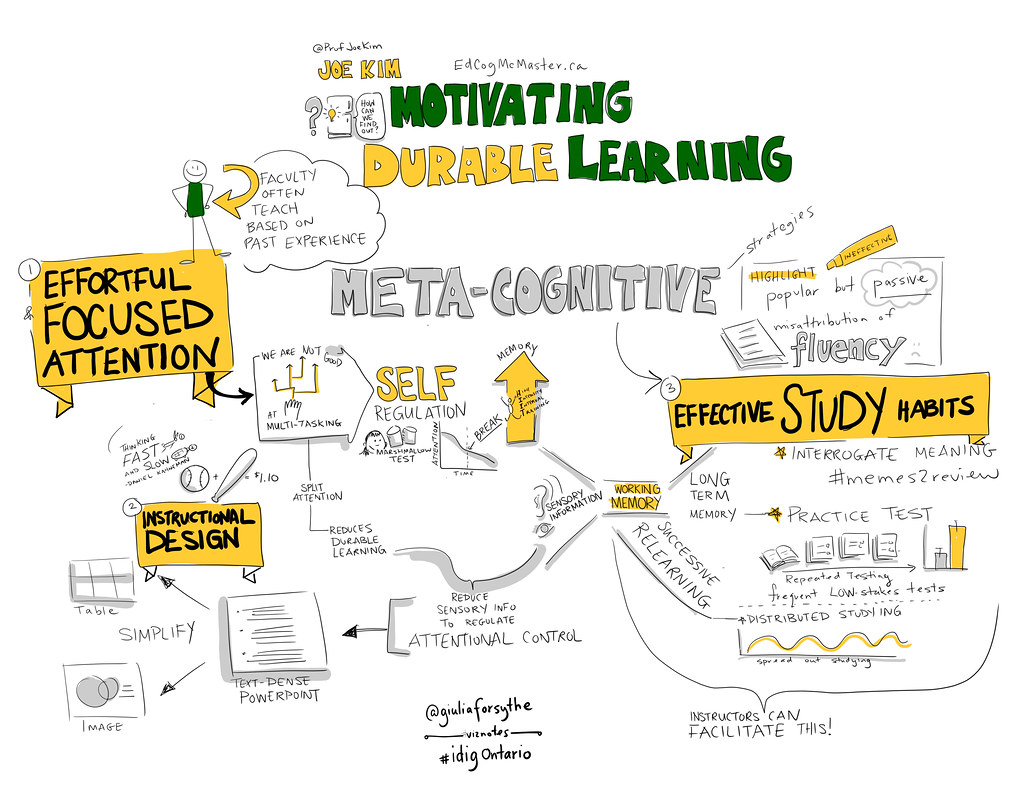 @ProfJoeKim
JOE KIM
EdCogMcMaster.ca
?
HOW
CAN
WE
FIND
OUT?
MOTIVATING
DURABLE LEARNING
FACULTY
OFTEN
TEACH
BASED ON
PAST EXPERIENCE
META-COGNITIVE
strategies
INEFFECTIVE
HIGHLIGHT
popular but passive
misattribution of
fluency
1
&
EFFORTFUL
FOCUSED
ATTENTION
WE ARE NOT GOOD
AT
MULTI-TASKING
SPLIT
ATTENTION
REDUCES
DURABLE
LEARNING
SELF
REGULATION
MARSHMALLOW
TEST
ATTENTION
TIME
BREAK
MEMORY
INTERVAL
TRAINING
THINKING
FAST
AND SLOW
-DANIEL KAHNEMAN
+ = $1.10
2
INSTRUCTIONAL
DESIGN
Table
SIMPLIFY
IMAGE
TEXT-DENSE
POWERPOINT
REDUCE
SENSORY INFO
TO REGULATE
ATTENTIONAL CONTROL
SENSORY
INFORMATION
WORKING
MEMORY
LONG
TERM
MEMORY
SUCCESSIVE
RELEARNING
3
EFFECTIVE STUDY HABITS
INTERROGATE MEANING
#memes2review
PRACTICE TEST
Repeated Testing
frequent LOW-stakes tests
DISTRIBUTED STUDYING
spread out studying
INSTRUCTORS CAN
FACILITATE THIS!
@giuliaforsythe
viznotes
#idigOntario